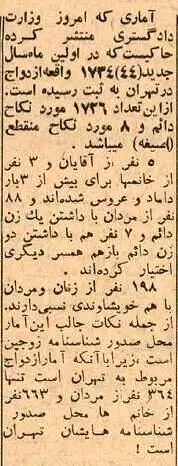 آماری که امروز وزارت
دادگستری منتشر کرده
حاکیست که در اولین ماه سال
جدید (۴۴) ۱۷۳۴ واقعه ازدواج
در تهران به ثبت رسیده است.
از این تعداد ۱۷۲۶ مورد نکاح
دائم و ۸ مورد نکاح منقطع
(صیغه) میباشد.
۵ نفر از آقایان و ۳ نفر
از خانمها برای بیش از ۳ بار
داماد و عروس شده‌اند و ۸۸
نفر از مردان با داشتن یك زن
دائم و ۷ نفر هم با داشتن دو
زن دائم بازهم همسر دیگری
اختیار کرده‌اند.
۱۹۸ نفر از زنان و مردان
با هم خویشاوندی نسبی دارند.
از جمله نکات جالب این آمار
محل صدور شناسنامه زوجین
است، زیرا با آنکه آمار ازدواج
مربوط به تهران است تنها
۳۶۴ نفر از مردان و ۶۶۳ نفر
از خانم ها محل صدور
شناسنامه هایشان تهران
است !